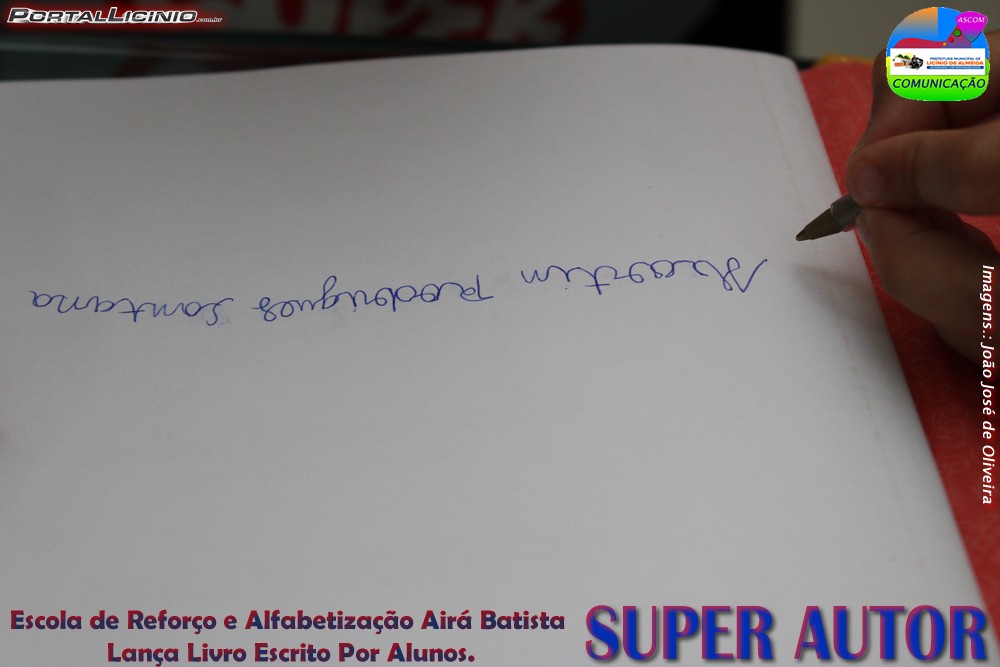 PORTALLICINIO.com.br
ASCOM
PREFEITURA MUNICIPAL DE
LICÍNIO DE ALMEIDA
COMUNICAÇÃO
Rodrigues Santana
Imagens.: João José de Oliveira
Escola de Reforço e Alfabetização Airá Batista
Lança Livro Escrito Por Alunos.
SUPER AUTOR